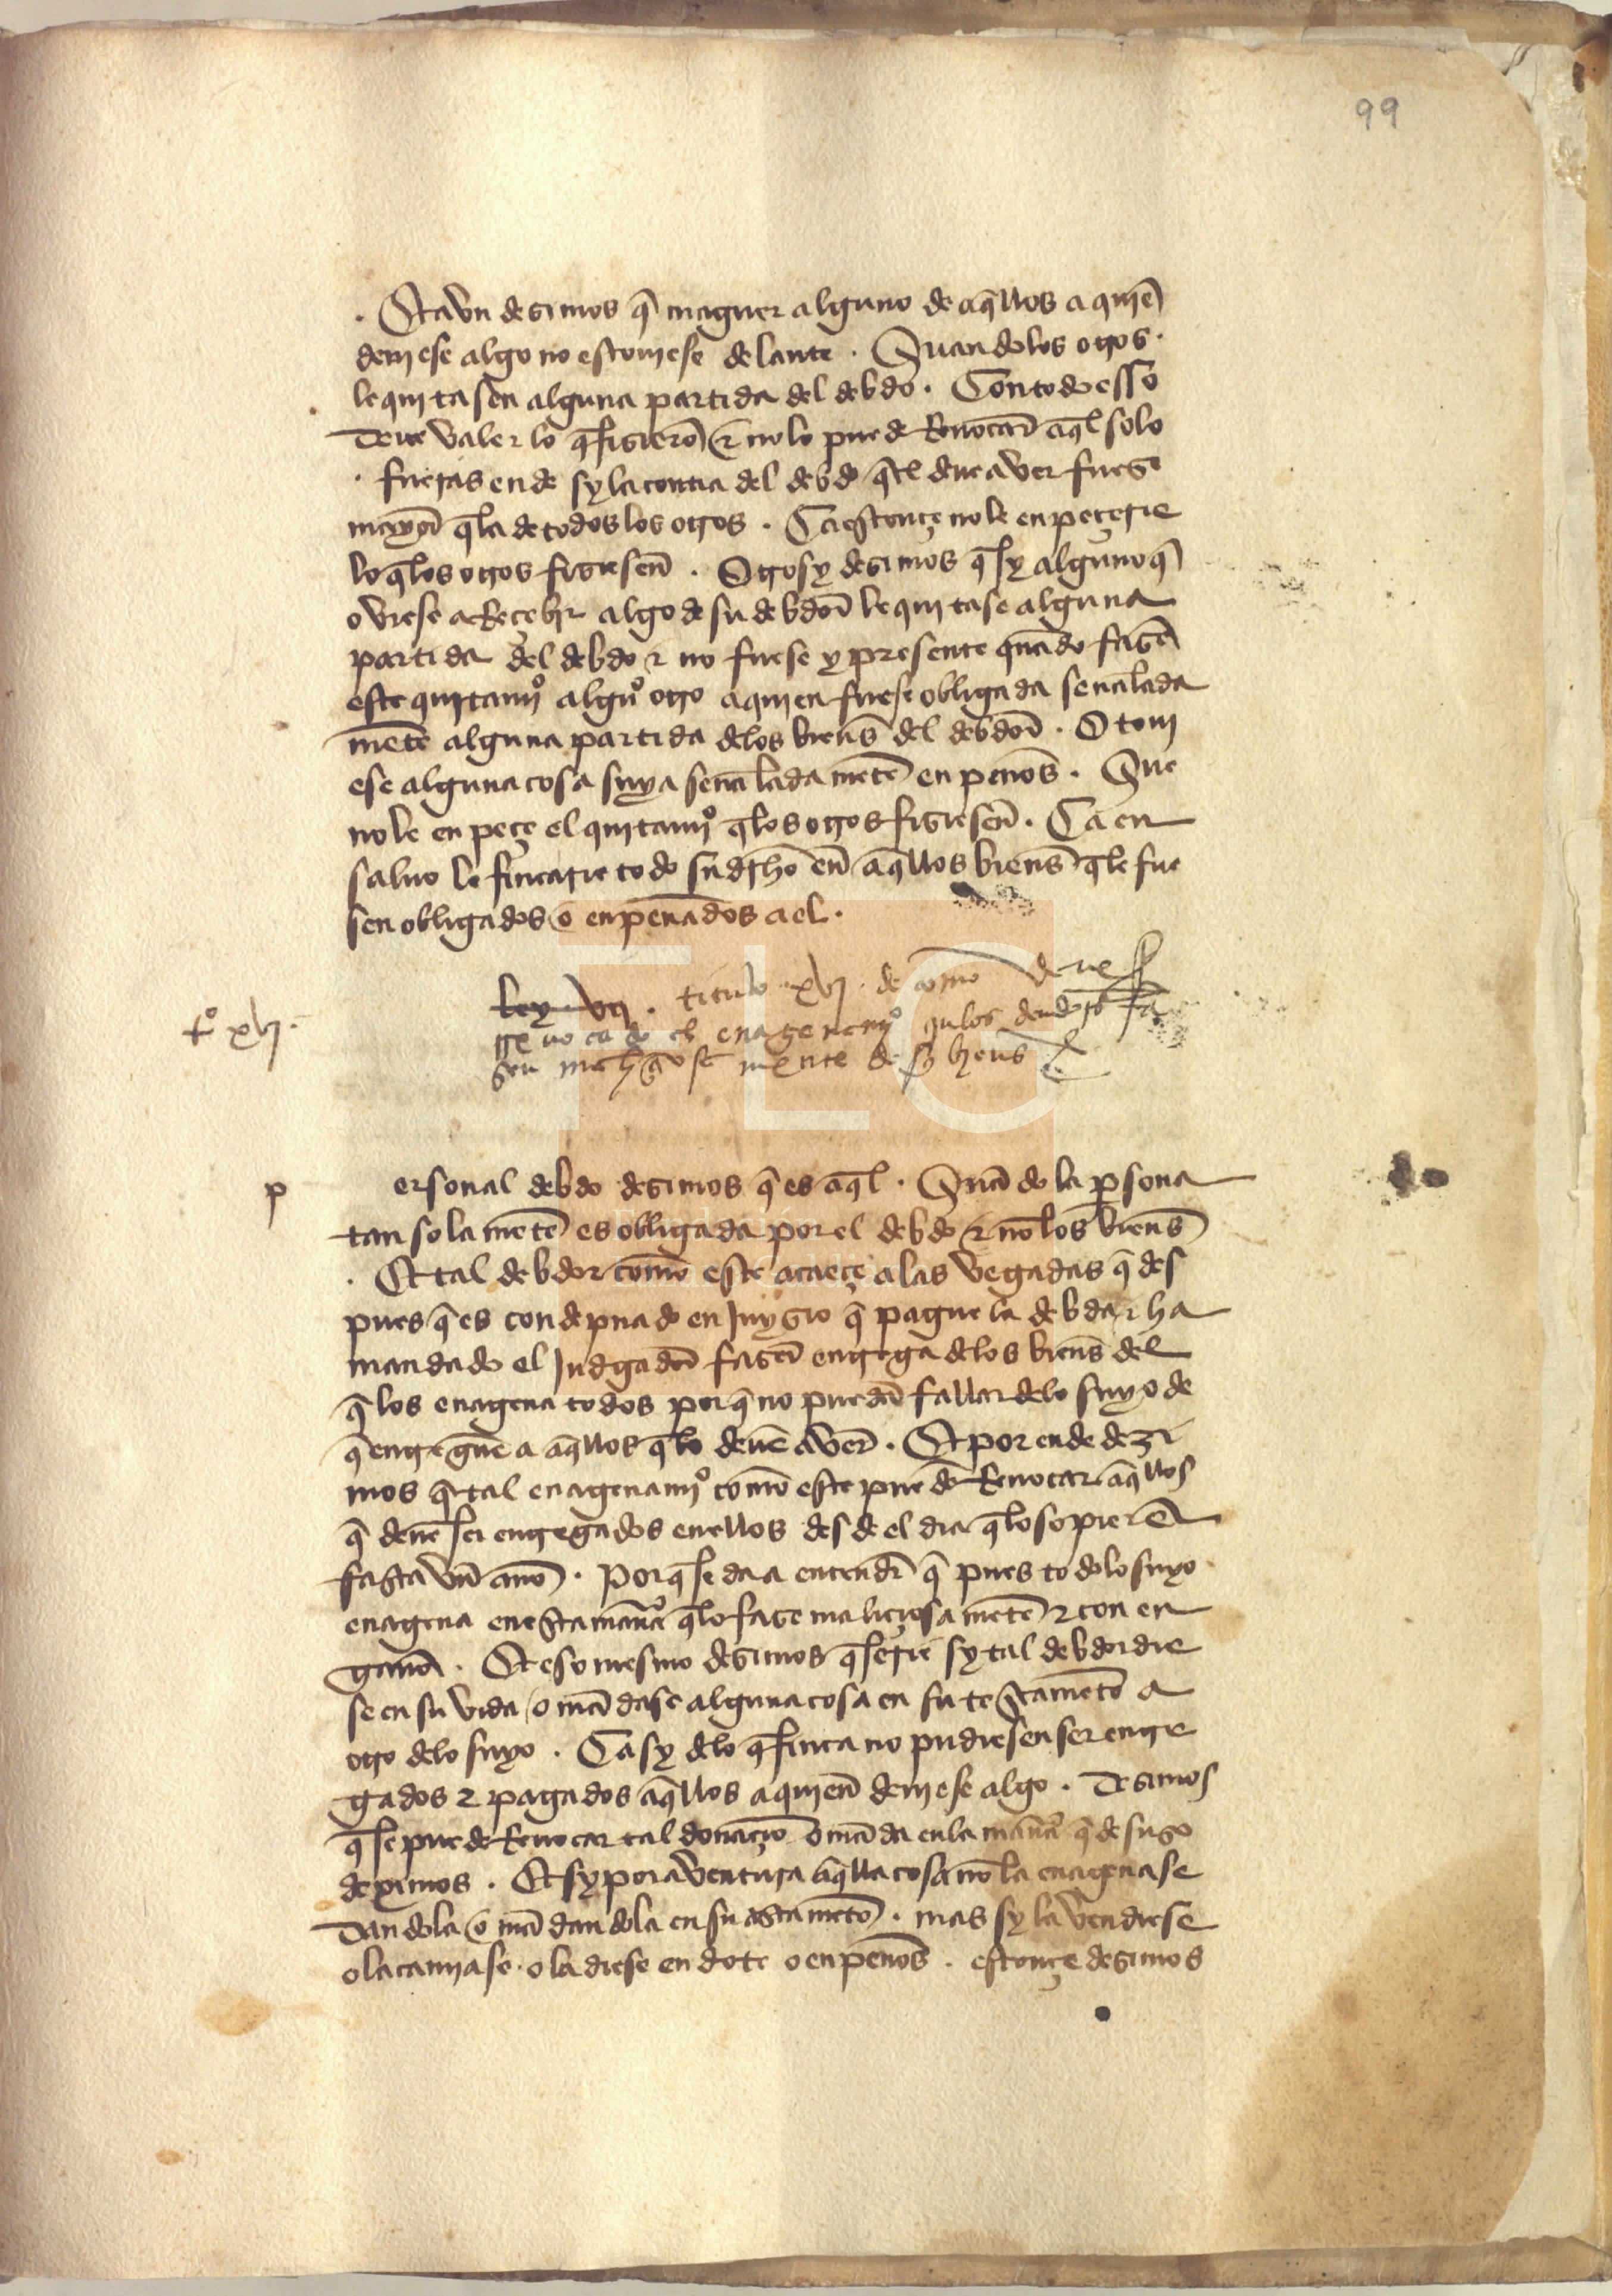 99
. Et avn desimos q̄ maguer alguno de aq̄llos a quiē
deuiese algo no estouiese delante . Quando los otros .
le quitasen alguna partida del debdo . Con todo esso
deue valer lo q̄ fisierō & no lo puede Reuocar aq̄l solo
. fueras ende sy la contia del debdo q̄ el deue aver fuese
mayor q̄ la de todos los otros . Ca estonçe no le enpeçerie
lo q̄ los otros fisiesen . Otrosy desimos q̄ sy alguno q̄
oviese a Reçebir algo de su debdor le quitase alguna
partida del debdo & no fuese y presente quādo fasē
este quitamj° algū otro a quien fuese obligada señalada
mētē alguna partida delos bienēs del debdor . O toui
ese alguna cosa suya señaladamētē en peños . Que
no le enpeçe el quitamj° q̄ los otros fisiesen . Ca en
saluo le fincarie todo su dr̄ho en aq̄llos bienēs q̄ le fue
sen obligados o enpeñados a el .
ley vij . titulo xvj . de como deue s̄
rreuocado el enagenamj° q̄ los debdores fa
sen maliçiosa mente de sus bienes
t° xvj .
p
ersonal debdo desimos q̄ es aq̄l . Quādo la p̄sona
tan sola mētē es obligada por el debdo & no los bienēs
. Et tal debdor como este acaeçe a las vegadas q̄ des
pues q̄ es condepnado en juysio q̄ pague la debda & ha
mandado el judgador faser entrega delos bienēs del
q̄ los enagena todos por q̄ no puedā fallar delo suyo de
q̄ entreguē a aq̄llos q̄ lo deuē aver . Et por ende dezi
mos q̄ tal enagenamj° como este puedē Reuocar aq̄llos
q̄ deuē ser entregados en ellos desde el dia q̄ lo sopierē
fasta vn año . Por q̄ se da a entender q̄ pues todo lo suyo
enagena en esta manera q̄ lo fase maliçiosa mētē & con en
gaño . Et eso mesmo desimos q̄ serie sy tal debdor die
se en su vida o mādase alguna cosa en su testamētō a
otro delo suyo . Ca sy delo q̄ finca no pudiesen ser entre
gados & pagados aq̄llos a quien deuiese algo . Desimos
q̄ se puede Reuocar tal donaçio o māda en la manera q̄ de suso
deximos . Et sy por aventura aq̄lla cosa no la enagenase
dandola o mādandola en su testamētō . mas sy la vendiese
o la camiase . o la diese en dote o en peños . estonçe desimos